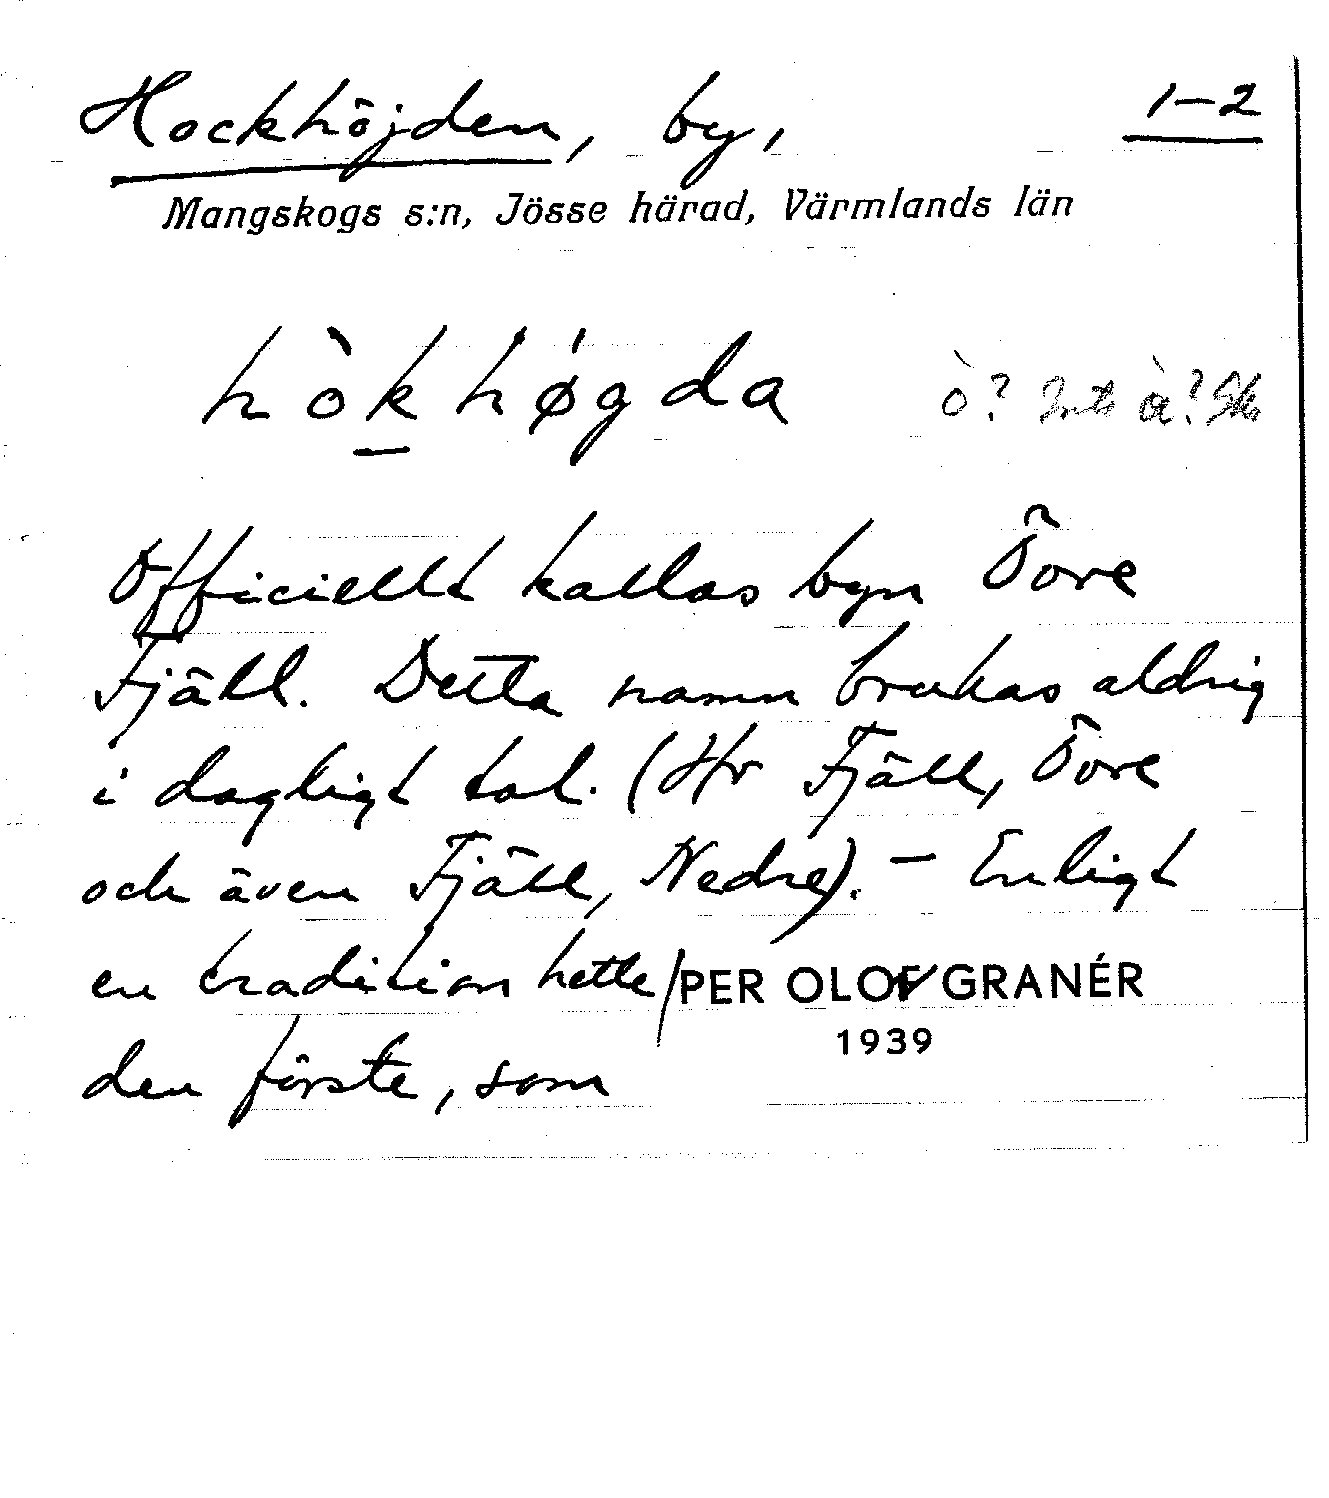 Hockhöjden, by, 1-2
Mangskogs s:n, Jösse härad, Värmlands län
hòkhøgda ò? Inte
Officiellt kallas byn Övre
Fjäll. Detta namn brukas aldrig
i dagligt tal. (Hr Fjäll, Övre
och även Fjäll, Nedre). — Enligt
en tradition hette / PER OLOF GRANÉR
1939
den förste, som